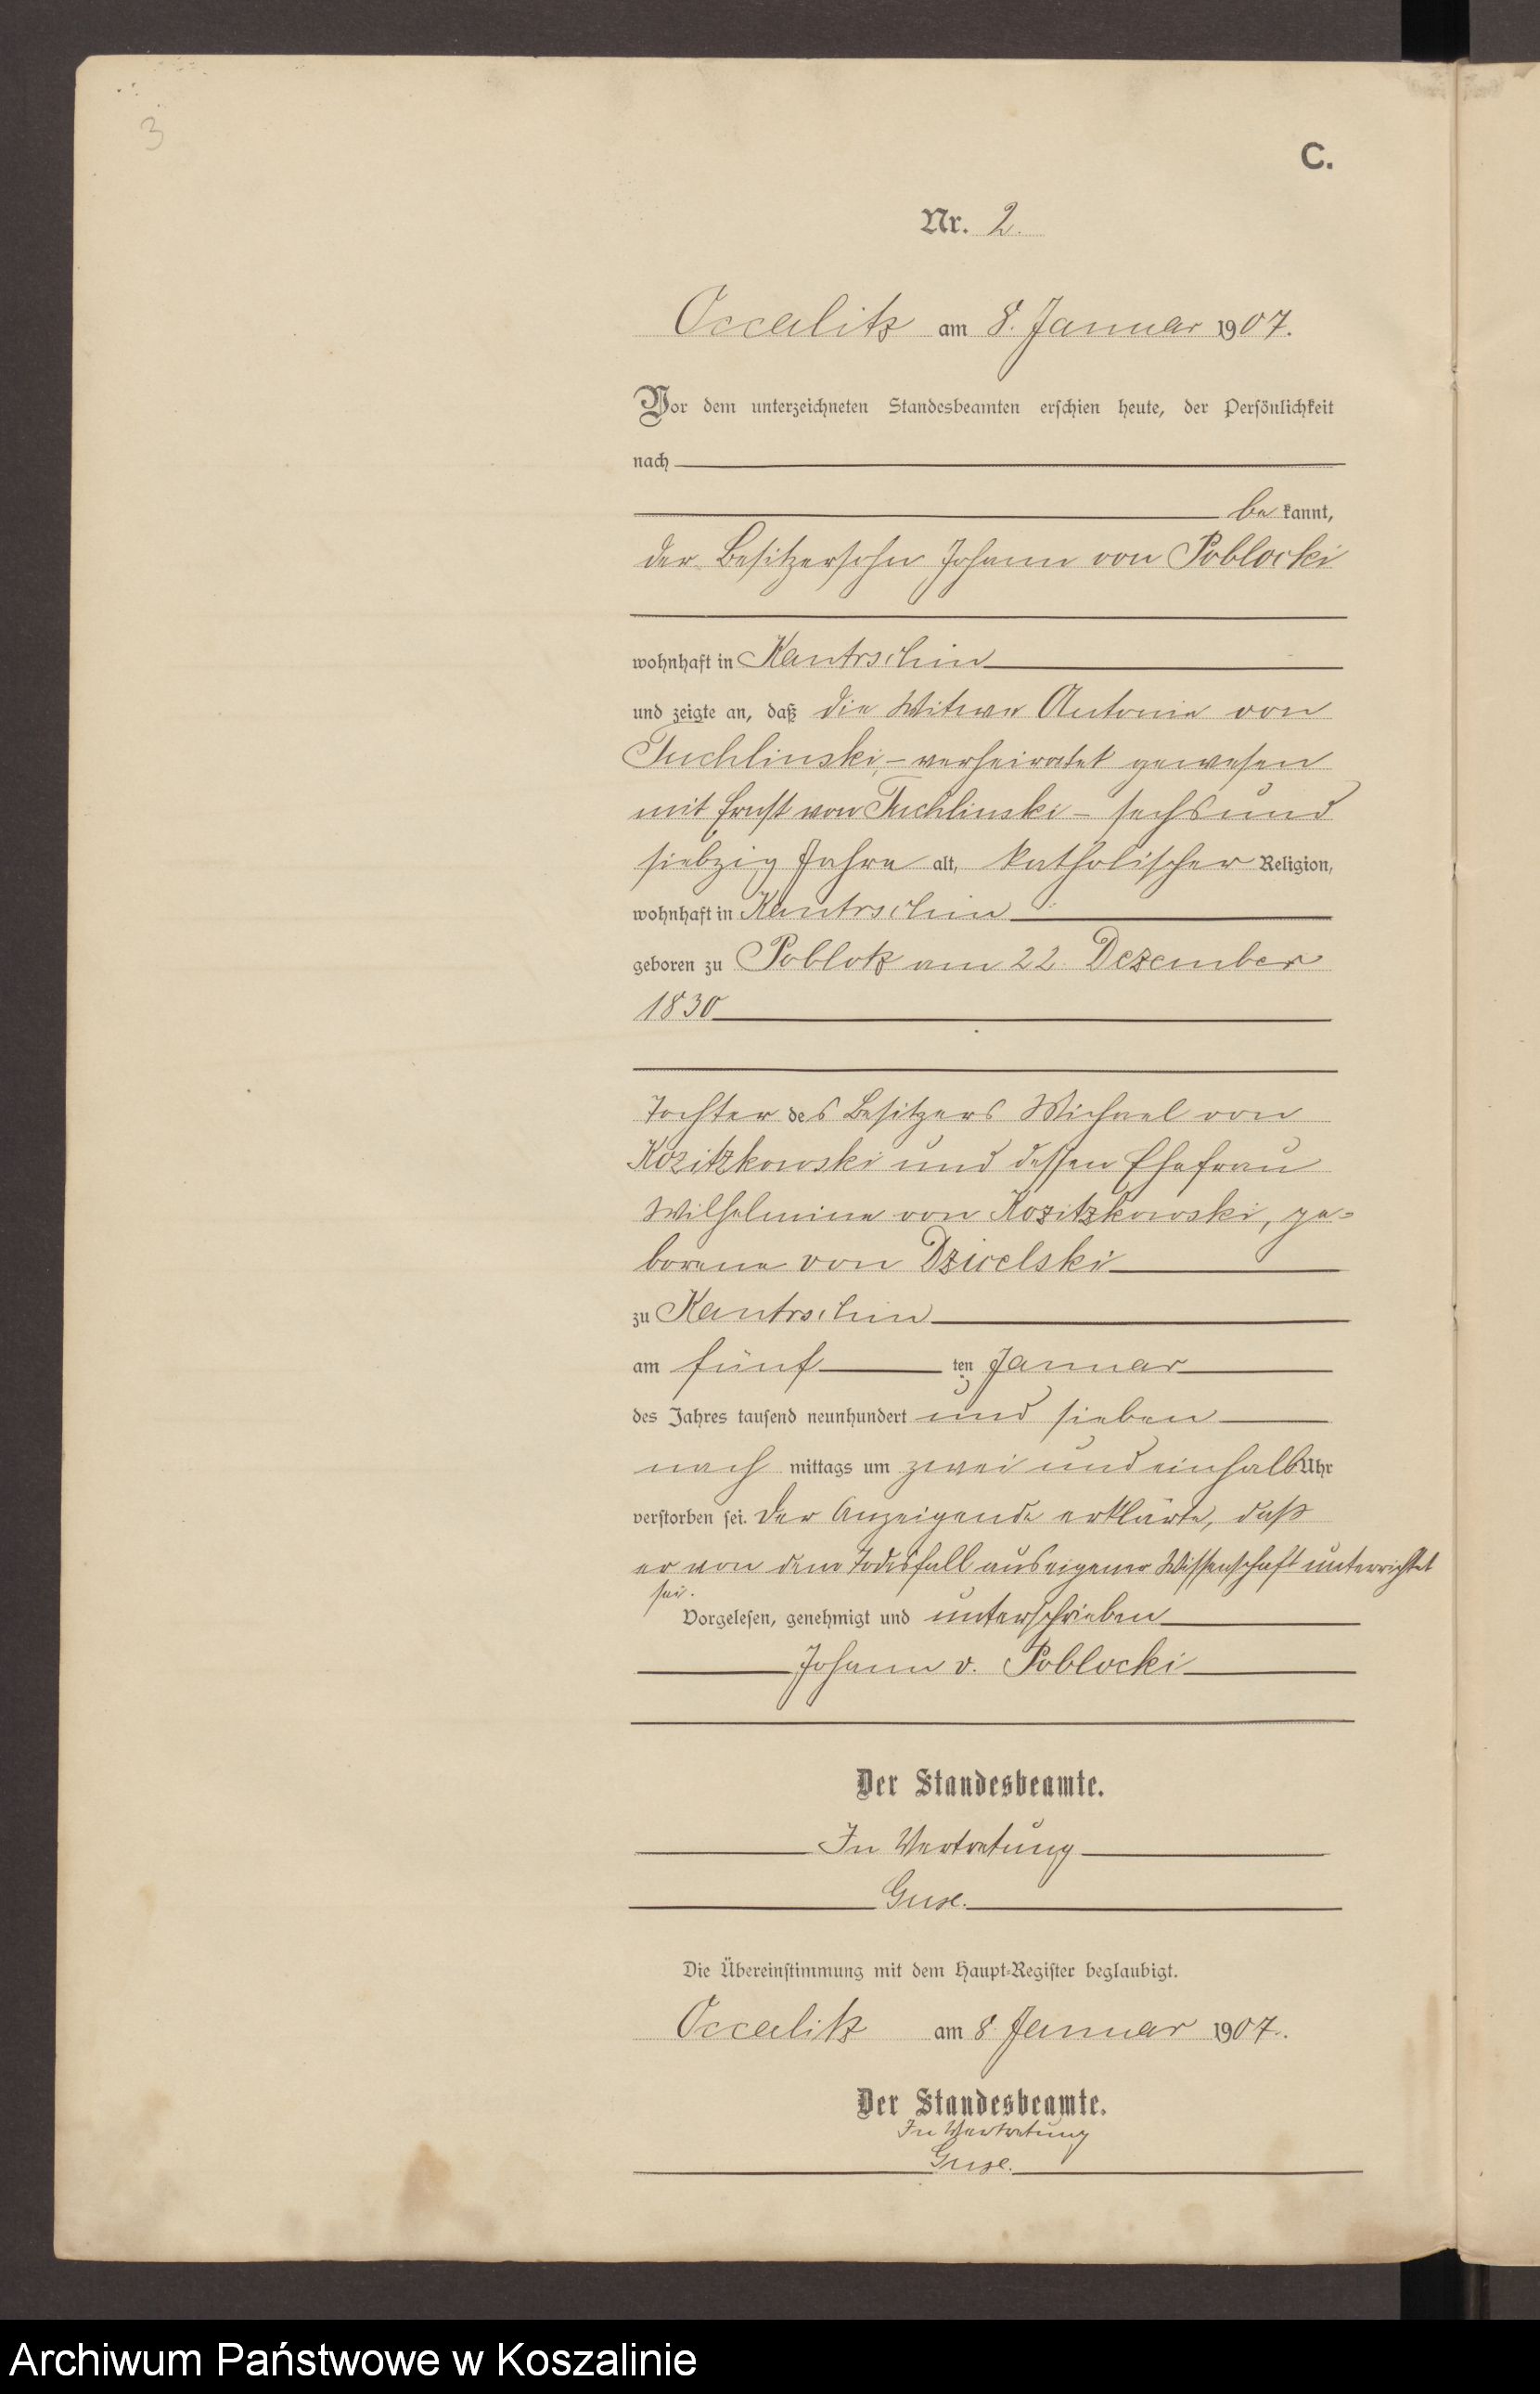 3
C.
Nr. 2.
Occalitz am 8. Januar 1907.
Vor dem unterzeichneten Standesbeamten erschien heute, der Persönlichkeit
nach
be kannt,
der Besitzersohn Johann von Poblocki
wohnhaft in Kantrschin
und zeigte an, daß die Witwe Antonie von
Tuchlinski, - verheiratet gewesen
mit Ernst von Tuchlinski - sechs und
siebzig Jahre alt, katholischer Religion,
wohnhaft in Kantrschin
geboren zu Poblotz am 22. Dezember
1830
Tochter des Besitzers Michael von
Kozitzkowski und dessen Ehefrau
Wilhelmine von Kozitzkowski, ge=
borene von Dzicelski
zu Kantrschin
am fünf ten Januar
des Jahres tausend neunhundert und sieben
nach mittags um zwei und einhalb Uhr
verstorben sei. Der Anzeigende erklärte, daß
er von dem Todesfall aus eigener Wissenschaft unterrichtet
sei.
Vorgelesen, genehmigt und unterschrieben
Johann v. Poblocki
Der Standesbeamte.
In Vertretung
Guse.
Die Übereinstimmung mit dem Haupt-Register beglaubigt.
Occalitz am 8. Januar 1907.
Der Standesbeamte.
In Vertretung
Guse.
Archiwum Państwowe w Koszalinie